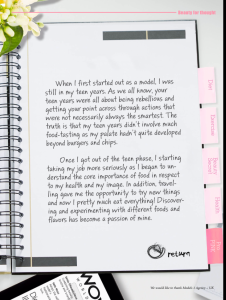 When I first started out as a model, I was
still in my teen years. As we all know, your
teen years were all about being rebellious and
getting your point across through actions that
were not necessarily always the smartest. The
truth is that my teen years didn't involve much
food-tasting as my palate hadn't quite developed
beyond burgers and chips.
Once I got out of the teen phase, I starting
taking my job more seriously as I began to un-
derstand the core importance of food in respect
to my health and my image. In addition, travel-
ling gave me the opportunity to try new things
and now I pretty much eat everything! Discover-
ing and experimenting with different foods and
flavors has become a passion of mine.
return